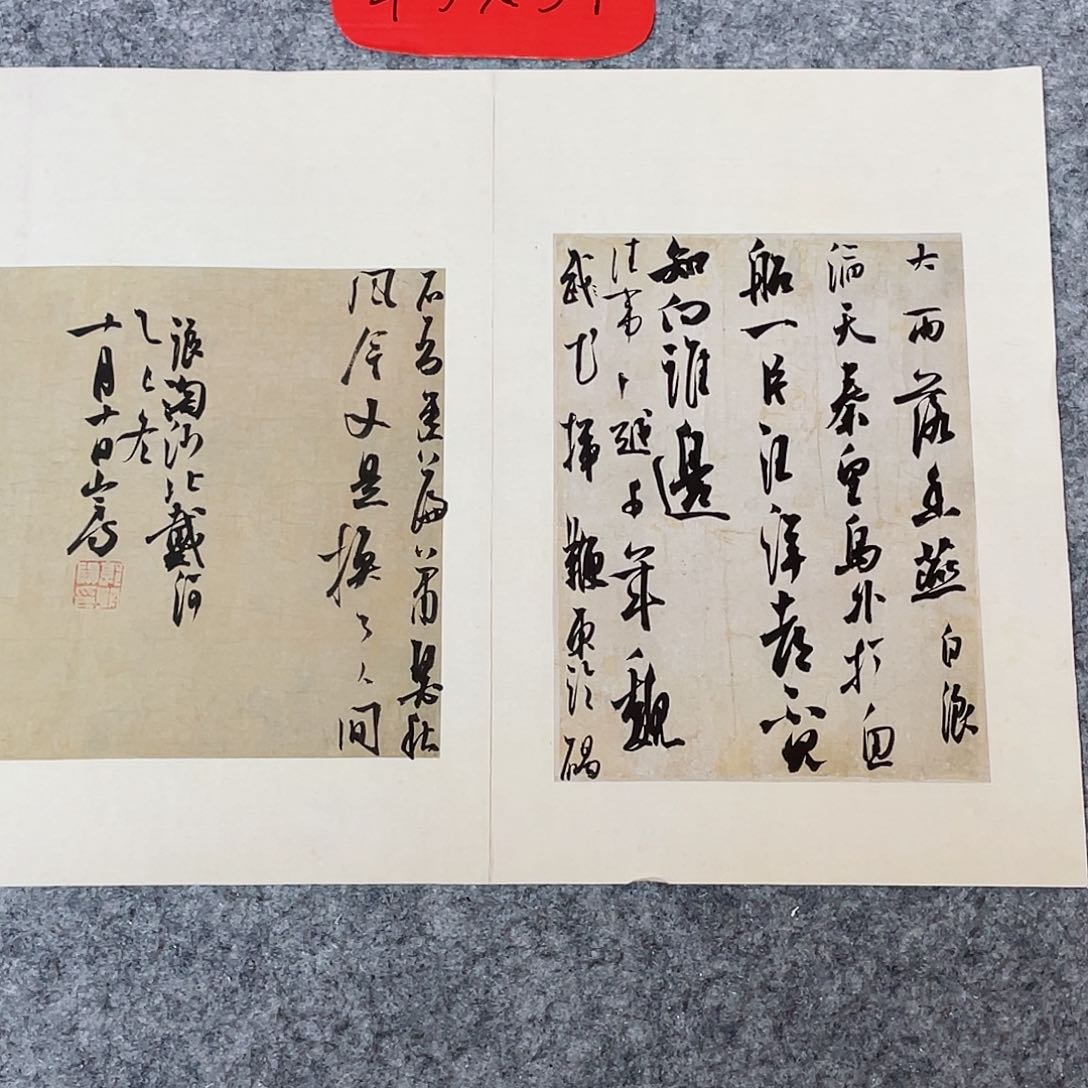 大雨落幽燕白浪
滔天秦皇島外打魚
船一片汪洋都不見
知向誰邊
往事越千年魏
武揮鞭東臨碣
石有遺篇蕭瑟秋
風今又是換了人間
浪淘沙北戴河
乙巳冬
十月十日山房